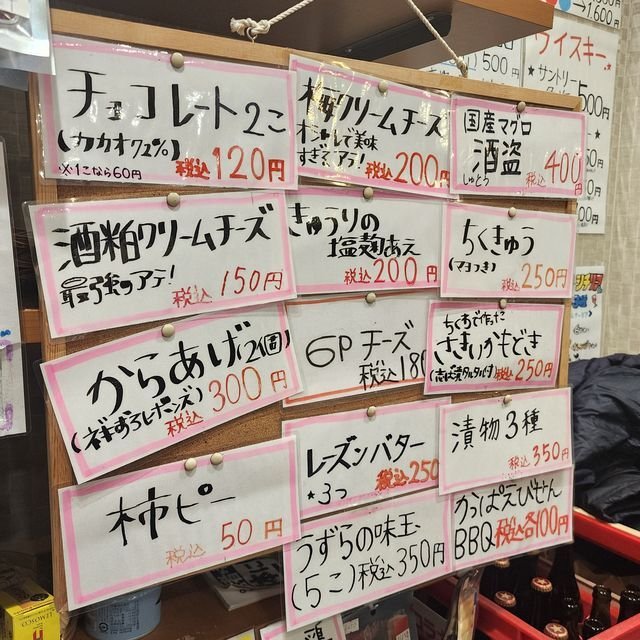 チョコレート2こ
(カカオ72%)
※1こなら60円
税込 120円
梅クリームチーズ
オシャレで美味
すぎるアテ!
税込 200円
国産マグロ
酒盗
しゅとう
税込 400円
酒粕クリームチーズ
最強のアテ!
税込 150円
きゅうりの
塩麹あえ
税込 200円
ちくきゅう
(マヨつき)
税込 250円
からあげ(2個)
税込 300円
6Pチーズ
税込 180
ちくわで作った
さきいかもどき
税込 250円
レーズンバター
★3つ
税込 250
漬物3種
税込 350円
柿ピー
税込 50円
うずらの味玉
(5こ)税込350円
かっぱえびせん
BBQ 税込各100円
ウイスキー
★サントリー
500円
400円
1,600円
500円
鶏